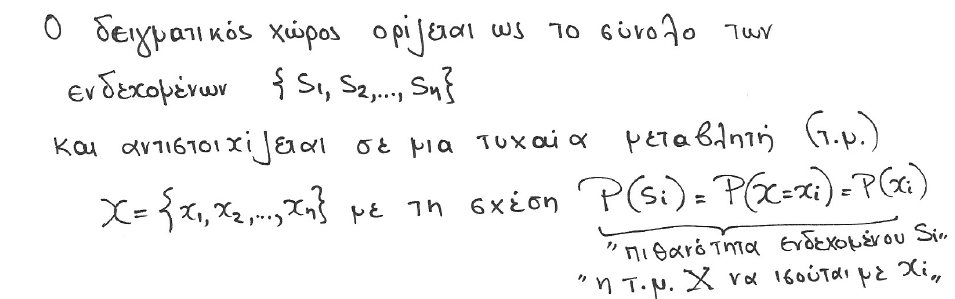 Ο δειγματικός χώρος ορίζεται ως το σύνολο των
ενδεχομένων {S1, S2,..., Sη}
και αντιστοιχίζεται σε μια τυχαία μεταβλητή (τ.μ.)
X = {x1, x2,..., xη} με τη σχέση P(Si) = P(X=xi) = P(xi)
"πιθανότητα ενδεχομένου Si"
"η τ.μ. X να ισούται με xi"